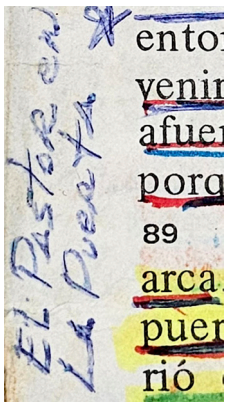 El Pastor en
La Puerta
entor
venir
afuer
porq
89
arca.
puer
rió